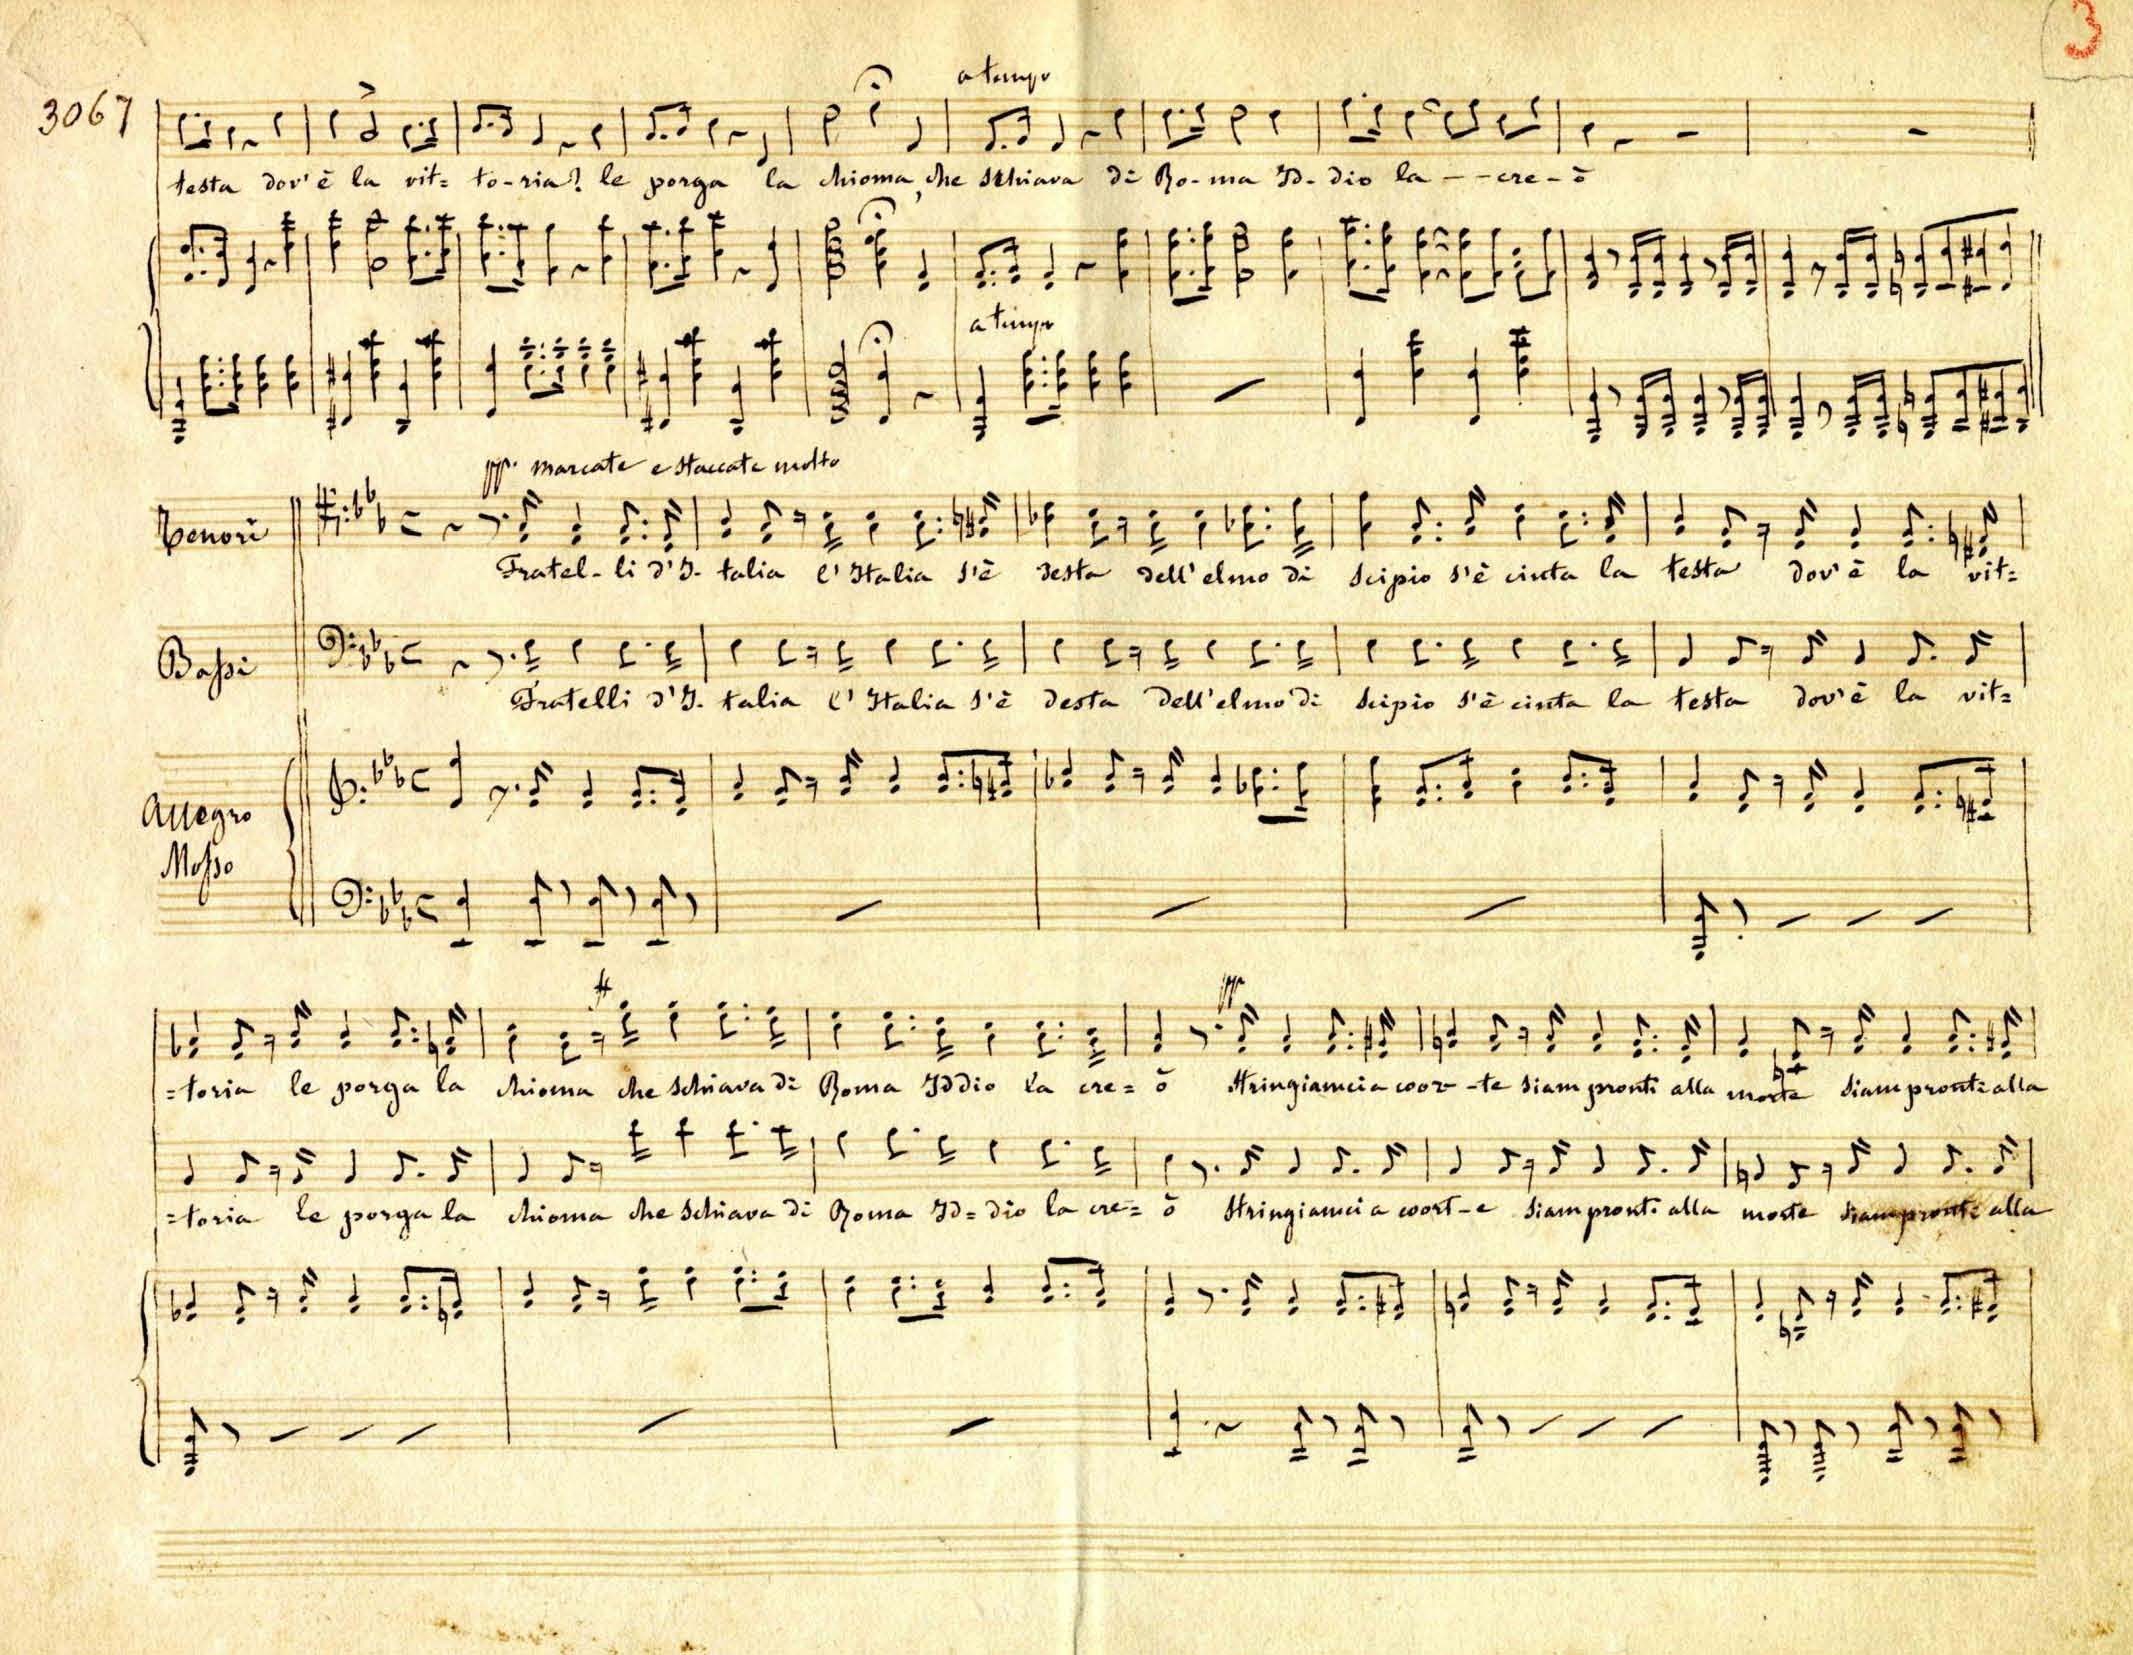 3
3067
a tempo
testa dov'è la vit= to-ria? le porga la chioma, che schiava di Ro-ma Id-dio la--cre-ò
a tempo
pp. marcate e staccate molto
Tenori
Fratel-li d'I- talia l'Italia s'è desta dell'elmo di scipio s'è cinta la testa dov'è la vit=
Bassi
Fratelli d'I- talia l'Italia s'è desta dell'elmo di scipio s'è cinta la testa dov'è la vit=
Allegro
Mosso
pp
=toria le porga la chioma che schiava di Roma Iddio la cre=ò stringiamci a coor--te siam pronti alla morte siam pronti alla
=toria le porga la chioma che schiava di Roma Id=dio la cre=ò stringiamci a coort-e siam pronti alla morte siam pronti alla